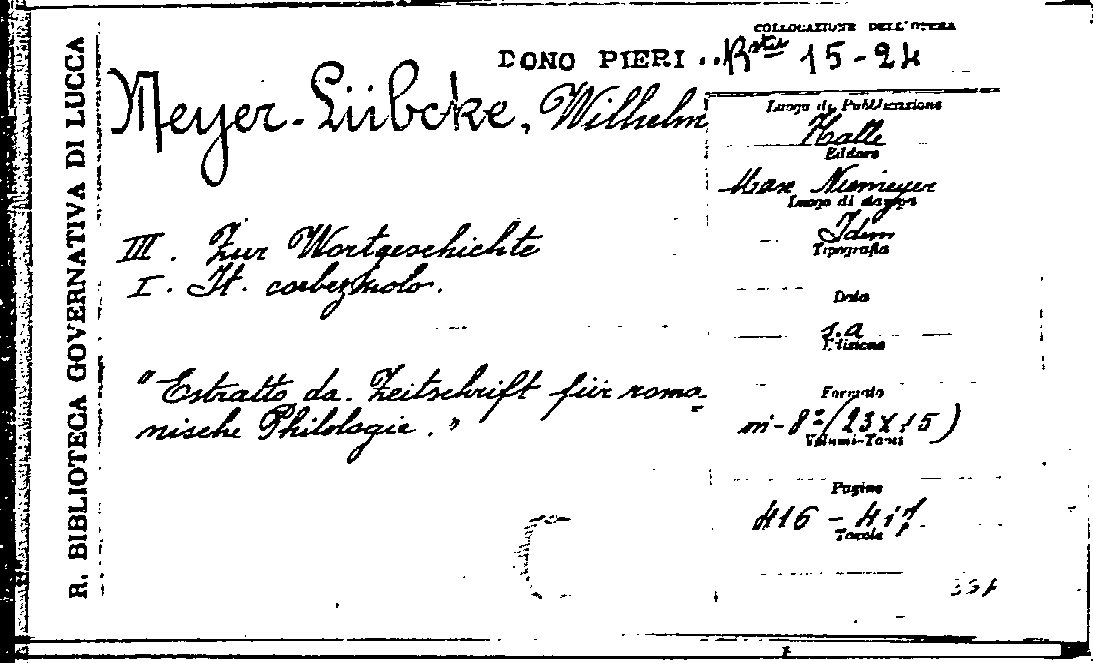 R. BIBLIOTECA GOVERNATIVA DI LUCCA
COLLOCAZIONE DELL'OPERA
DONO PIERI .. 15-24
Meyer-Lübcke, Wilhelm
Luogo di Pubblicazione
Halle
Editore
Max Niemeyer
Luogo di stampa
Idem
Tipografia
III. Zur Wortgeschichte
I. It. corbezzuolo.
Data
s.a
Edizione
"Estratto da. Zeitschrift für roma-
nische Philologie."
Formato
in-8º (23x15)
Volumi-Tomi
Pagine
416 - 417.
Tavole